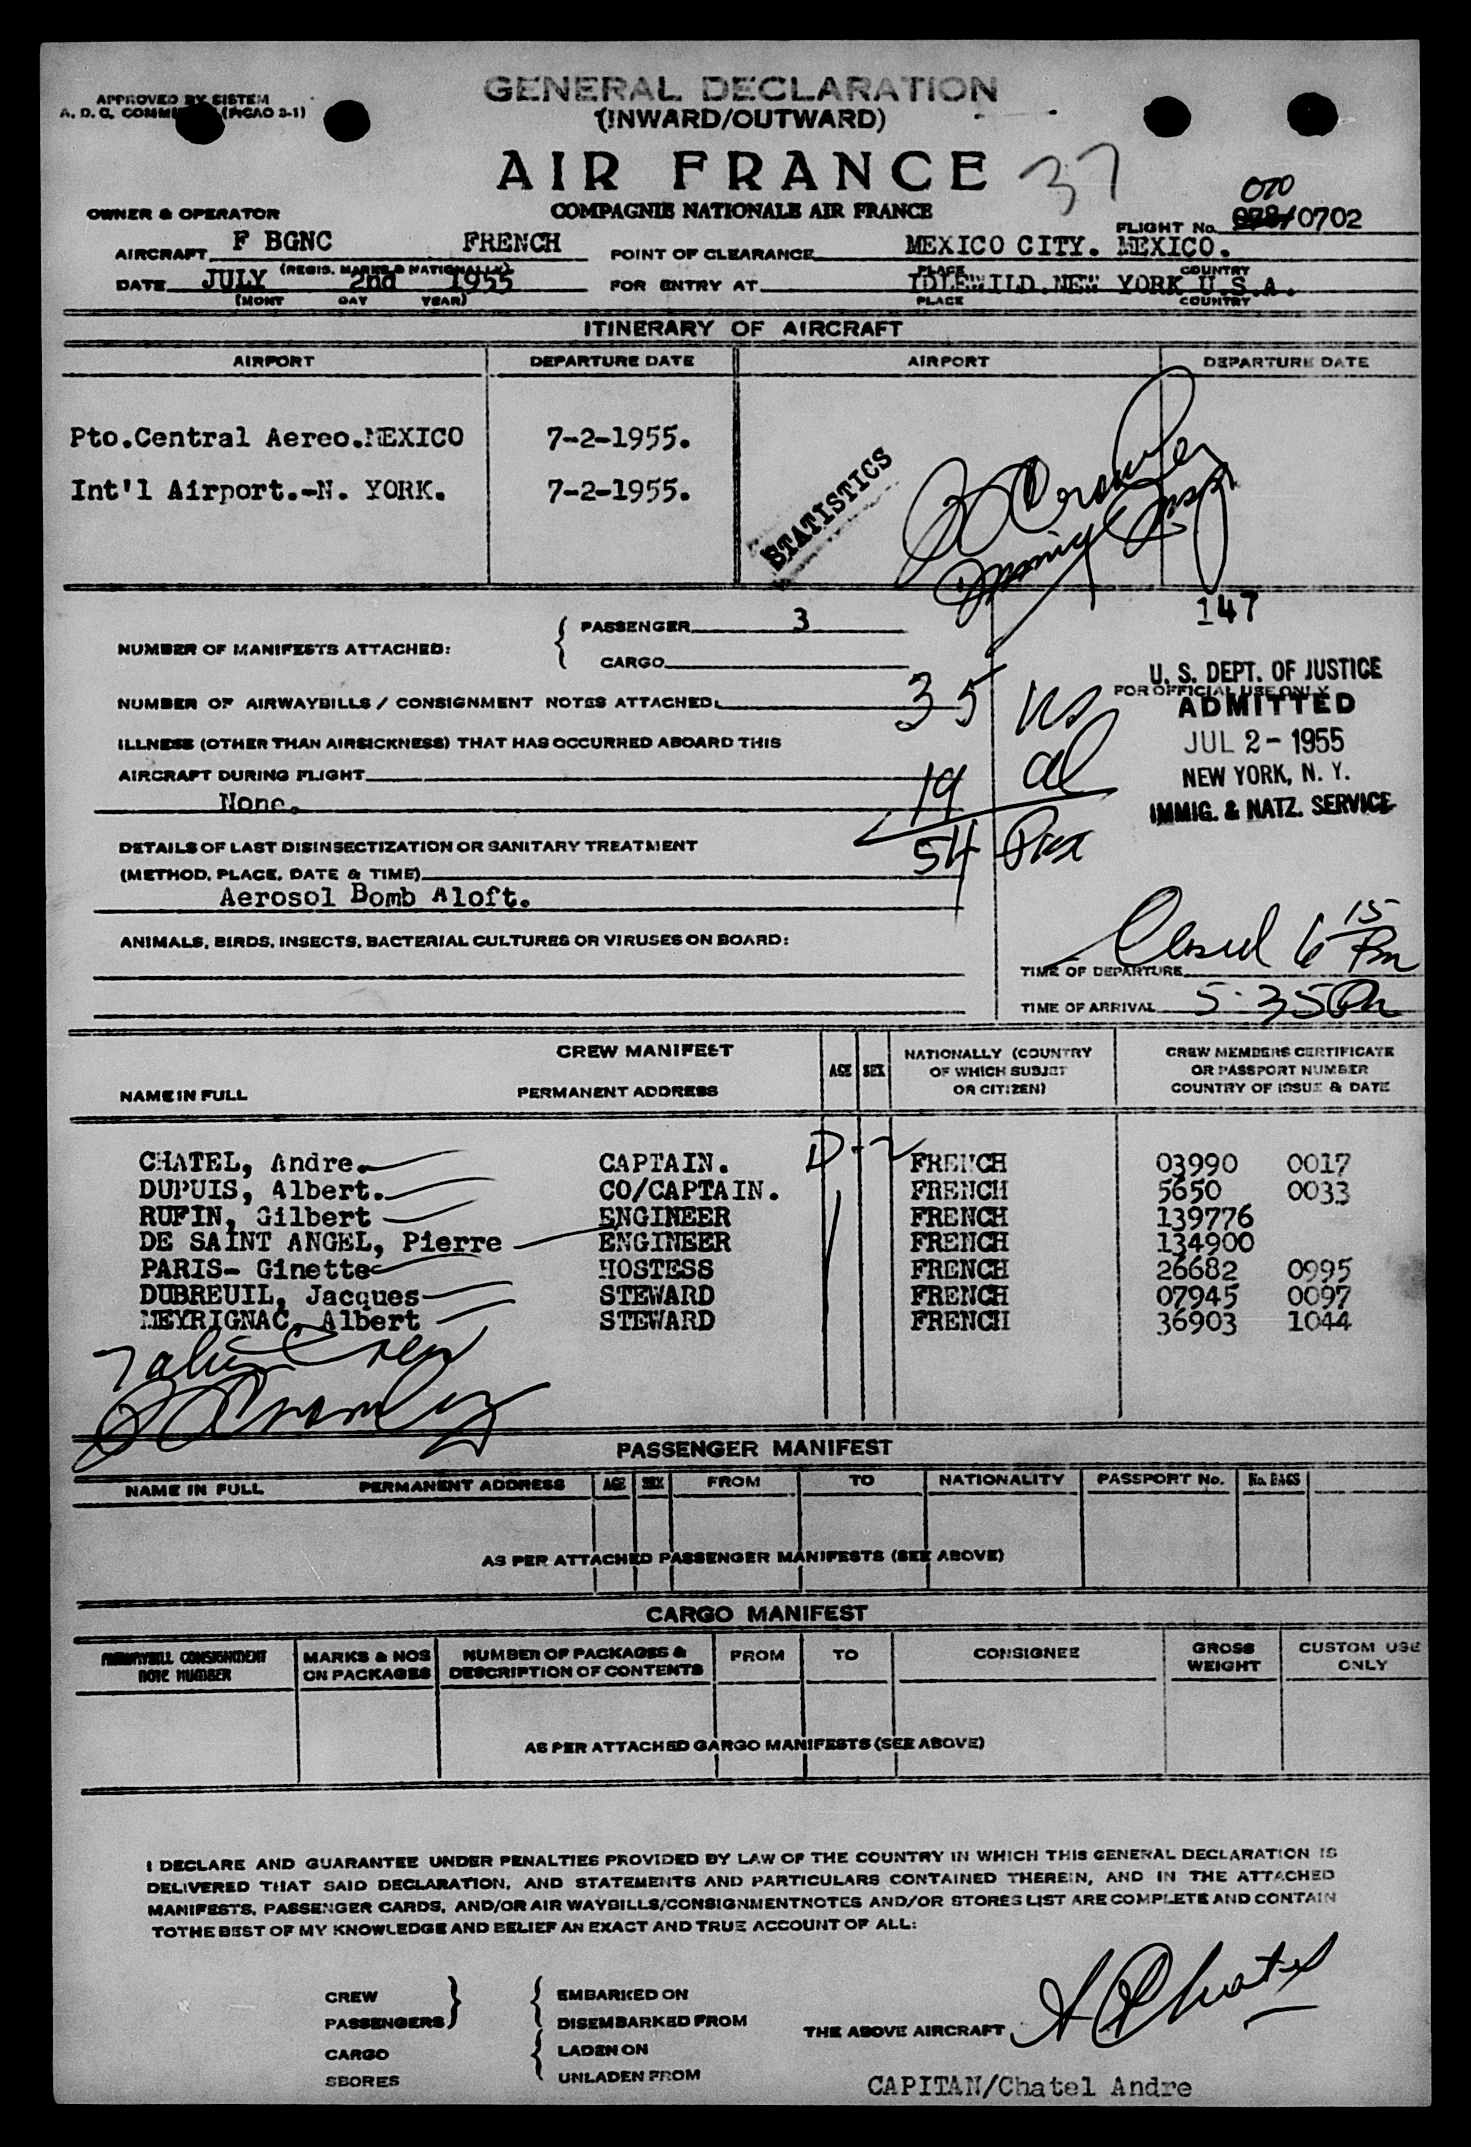 APPROVED BY SISTEM
A. D. C. (PICAO 2-1)
GENERAL DECLARATION
(INWARD/OUTWARD)
AIR FRANCE
37
COMPAGNIE NATIONALE AIR FRANCE
OWNER & OPERATOR
070
FLIGHT No. 078/0702
AIRCRAFT F BGNC FRENCH
POINT OF CLEARANCE MEXICO CITY. MEXICO.
(REGIS. MARKS & NATIONALLY)
PLACE COUNTRY
DATE JULY 2nd 1955
FOR ENTRY AT IDLEWILD.NEW YORK U.S.A.
(MONT DAY YEAR)
PLACE COUNTRY
ITINERARY OF AIRCRAFT
AIRPORT DEPARTURE DATE AIRPORT DEPARTURE DATE
Pto.Central Aereo.MEXICO 7-2-1955.
Int'l Airport.-N. YORK. 7-2-1955.
STATISTICS
Crowley
Immig Insp
147
NUMBER OF MANIFESTS ATTACHED:
PASSENGER 3
CARGO
U. S. DEPT. OF JUSTICE
FOR OFFICIAL USE ONLY
ADMITTED
JUL 2 - 1955
NEW YORK, N. Y.
IMMIG. & NATZ. SERVICE
NUMBER OF AIRWAYBILLS / CONSIGNMENT NOTES ATTACHED:
35 US
ILLNESS (OTHER THAN AIRSICKNESS) THAT HAS OCCURRED ABOARD THIS
AIRCRAFT DURING FLIGHT
None.
19 al
54 Pax
DETAILS OF LAST DISINSECTIZATION OR SANITARY TREATMENT
(METHOD, PLACE, DATE & TIME)
Aerosol Bomb Aloft.
ANIMALS, BIRDS, INSECTS, BACTERIAL CULTURES OR VIRUSES ON BOARD:
Closed 6 15 Pm
TIME OF DEPARTURE
TIME OF ARRIVAL 5:35 Pm
CREW MANIFEST
NAME IN FULL
PERMANENT ADDRESS
AGE SEX
NATIONALLY (COUNTRY
OF WHICH SUBJET
OR CITIZEN)
CREW MEMBERS CERTIFICATE
OR PASSPORT NUMBER
COUNTRY OF ISSUE & DATE
D-2
CHATEL, Andre. CAPTAIN. FRENCH 03990 0017
DUPUIS, Albert. CO/CAPTAIN. FRENCH 5650 0033
RUFIN, Gilbert ENGINEER FRENCH 139776
DE SAINT ANGEL, Pierre ENGINEER FRENCH 134900
PARIS- Ginette HOSTESS FRENCH 26682 0995
DUBREUIL, Jacques STEWARD FRENCH 07945 0097
MEYRIGNAC, Albert STEWARD FRENCH 36903 1044
7 Crew
Crowley
PASSENGER MANIFEST
NAME IN FULL PERMANENT ADDRESS AGE SEX FROM TO NATIONALITY PASSPORT No. No. BAGS
AS PER ATTACHED PASSENGER MANIFESTS (SEE ABOVE)
CARGO MANIFEST
AIRWAYBILL CONSIGNMENT
NOTE NUMBER
MARKS & NOS
ON PACKAGES
NUMBER OF PACKAGES &
DESCRIPTION OF CONTENTS
FROM TO CONSIGNEE
GROSS
WEIGHT
CUSTOM USE
ONLY
AS PER ATTACHED CARGO MANIFESTS (SEE ABOVE)
I DECLARE AND GUARANTEE UNDER PENALTIES PROVIDED BY LAW OF THE COUNTRY IN WHICH THIS GENERAL DECLARATION IS
DELIVERED THAT SAID DECLARATION, AND STATEMENTS AND PARTICULARS CONTAINED THEREIN, AND IN THE ATTACHED
MANIFESTS, PASSENGER CARDS, AND/OR AIR WAYBILLS/CONSIGNMENTNOTES AND/OR STORES LIST ARE COMPLETE AND CONTAIN
TOTHE BEST OF MY KNOWLEDGE AND BELIEF AN EXACT AND TRUE ACCOUNT OF ALL:
CREW
PASSENGERS
CARGO
SBORES
EMBARKED ON
DISEMBARKED FROM
LADEN ON
UNLADEN FROM
THE ABOVE AIRCRAFT A Chatel
CAPITAN/Chatel Andre